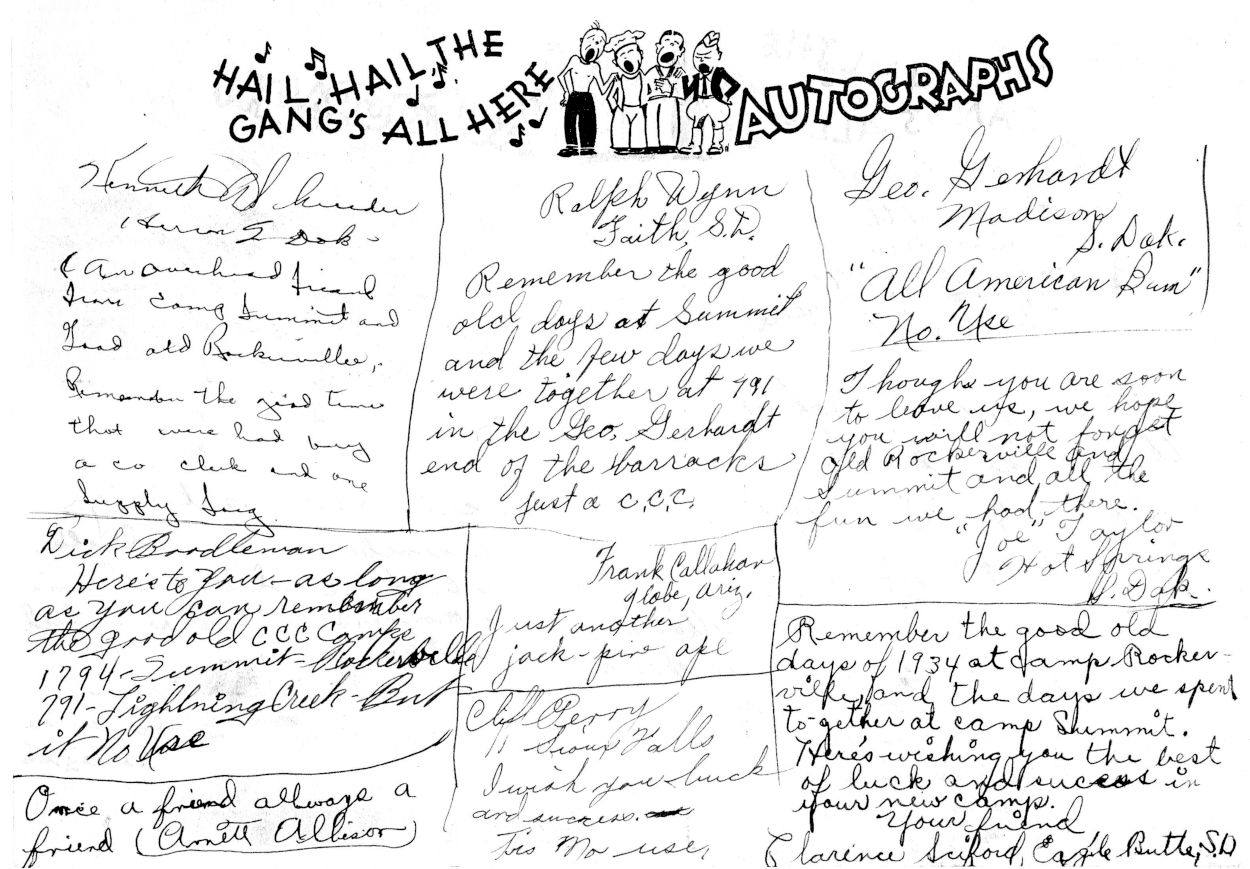 HAIL, HAIL THE
GANG'S ALL HERE
AUTOGRAPHS
Kenneth
S Dak.
(An overhead friend
from Camp Summit and
Good old Rockerville.
Remember the good time
that were had by
a co clerk and one
Supply Sug
Ralph Wynn
Faith, S.D.
Remember the good
old days at Summit
and the few days we
were together at 791
in the Geo. Gerhardt
end of the barracks
just a C.C.C.
Geo. Gerhardt
Madison
S. Dak.
"All American Bum"
No. Use
Though you are soon
to leave us, we hope
you will not forget
Old Rockerville and
Summit and all the
fun we had there.
"Joe" Taylor
Hot Springs
S. Dak.
Dick Boodleman
Here's to You - as long
as you can remember
the good old CCC Camps
1794 - Summit - Rockerville
791 - Lightning Creek - But
it No Use
Frank Callahan
Globe, Ariz.
Just another
jack-pine ape
Remember the good old
days of 1934 at camp Rocker-
ville, and the days we spent
to-gether at camp Summit.
Here's wishing you the best
of luck and success in
your new camp.
Your friend
Clarence Sciford, Eagle Butte, S.D
Clif Perry
Sioux Falls
I wish you luck
and success.
tis No use,
Once a friend allways a
friend (Arnett Allison)